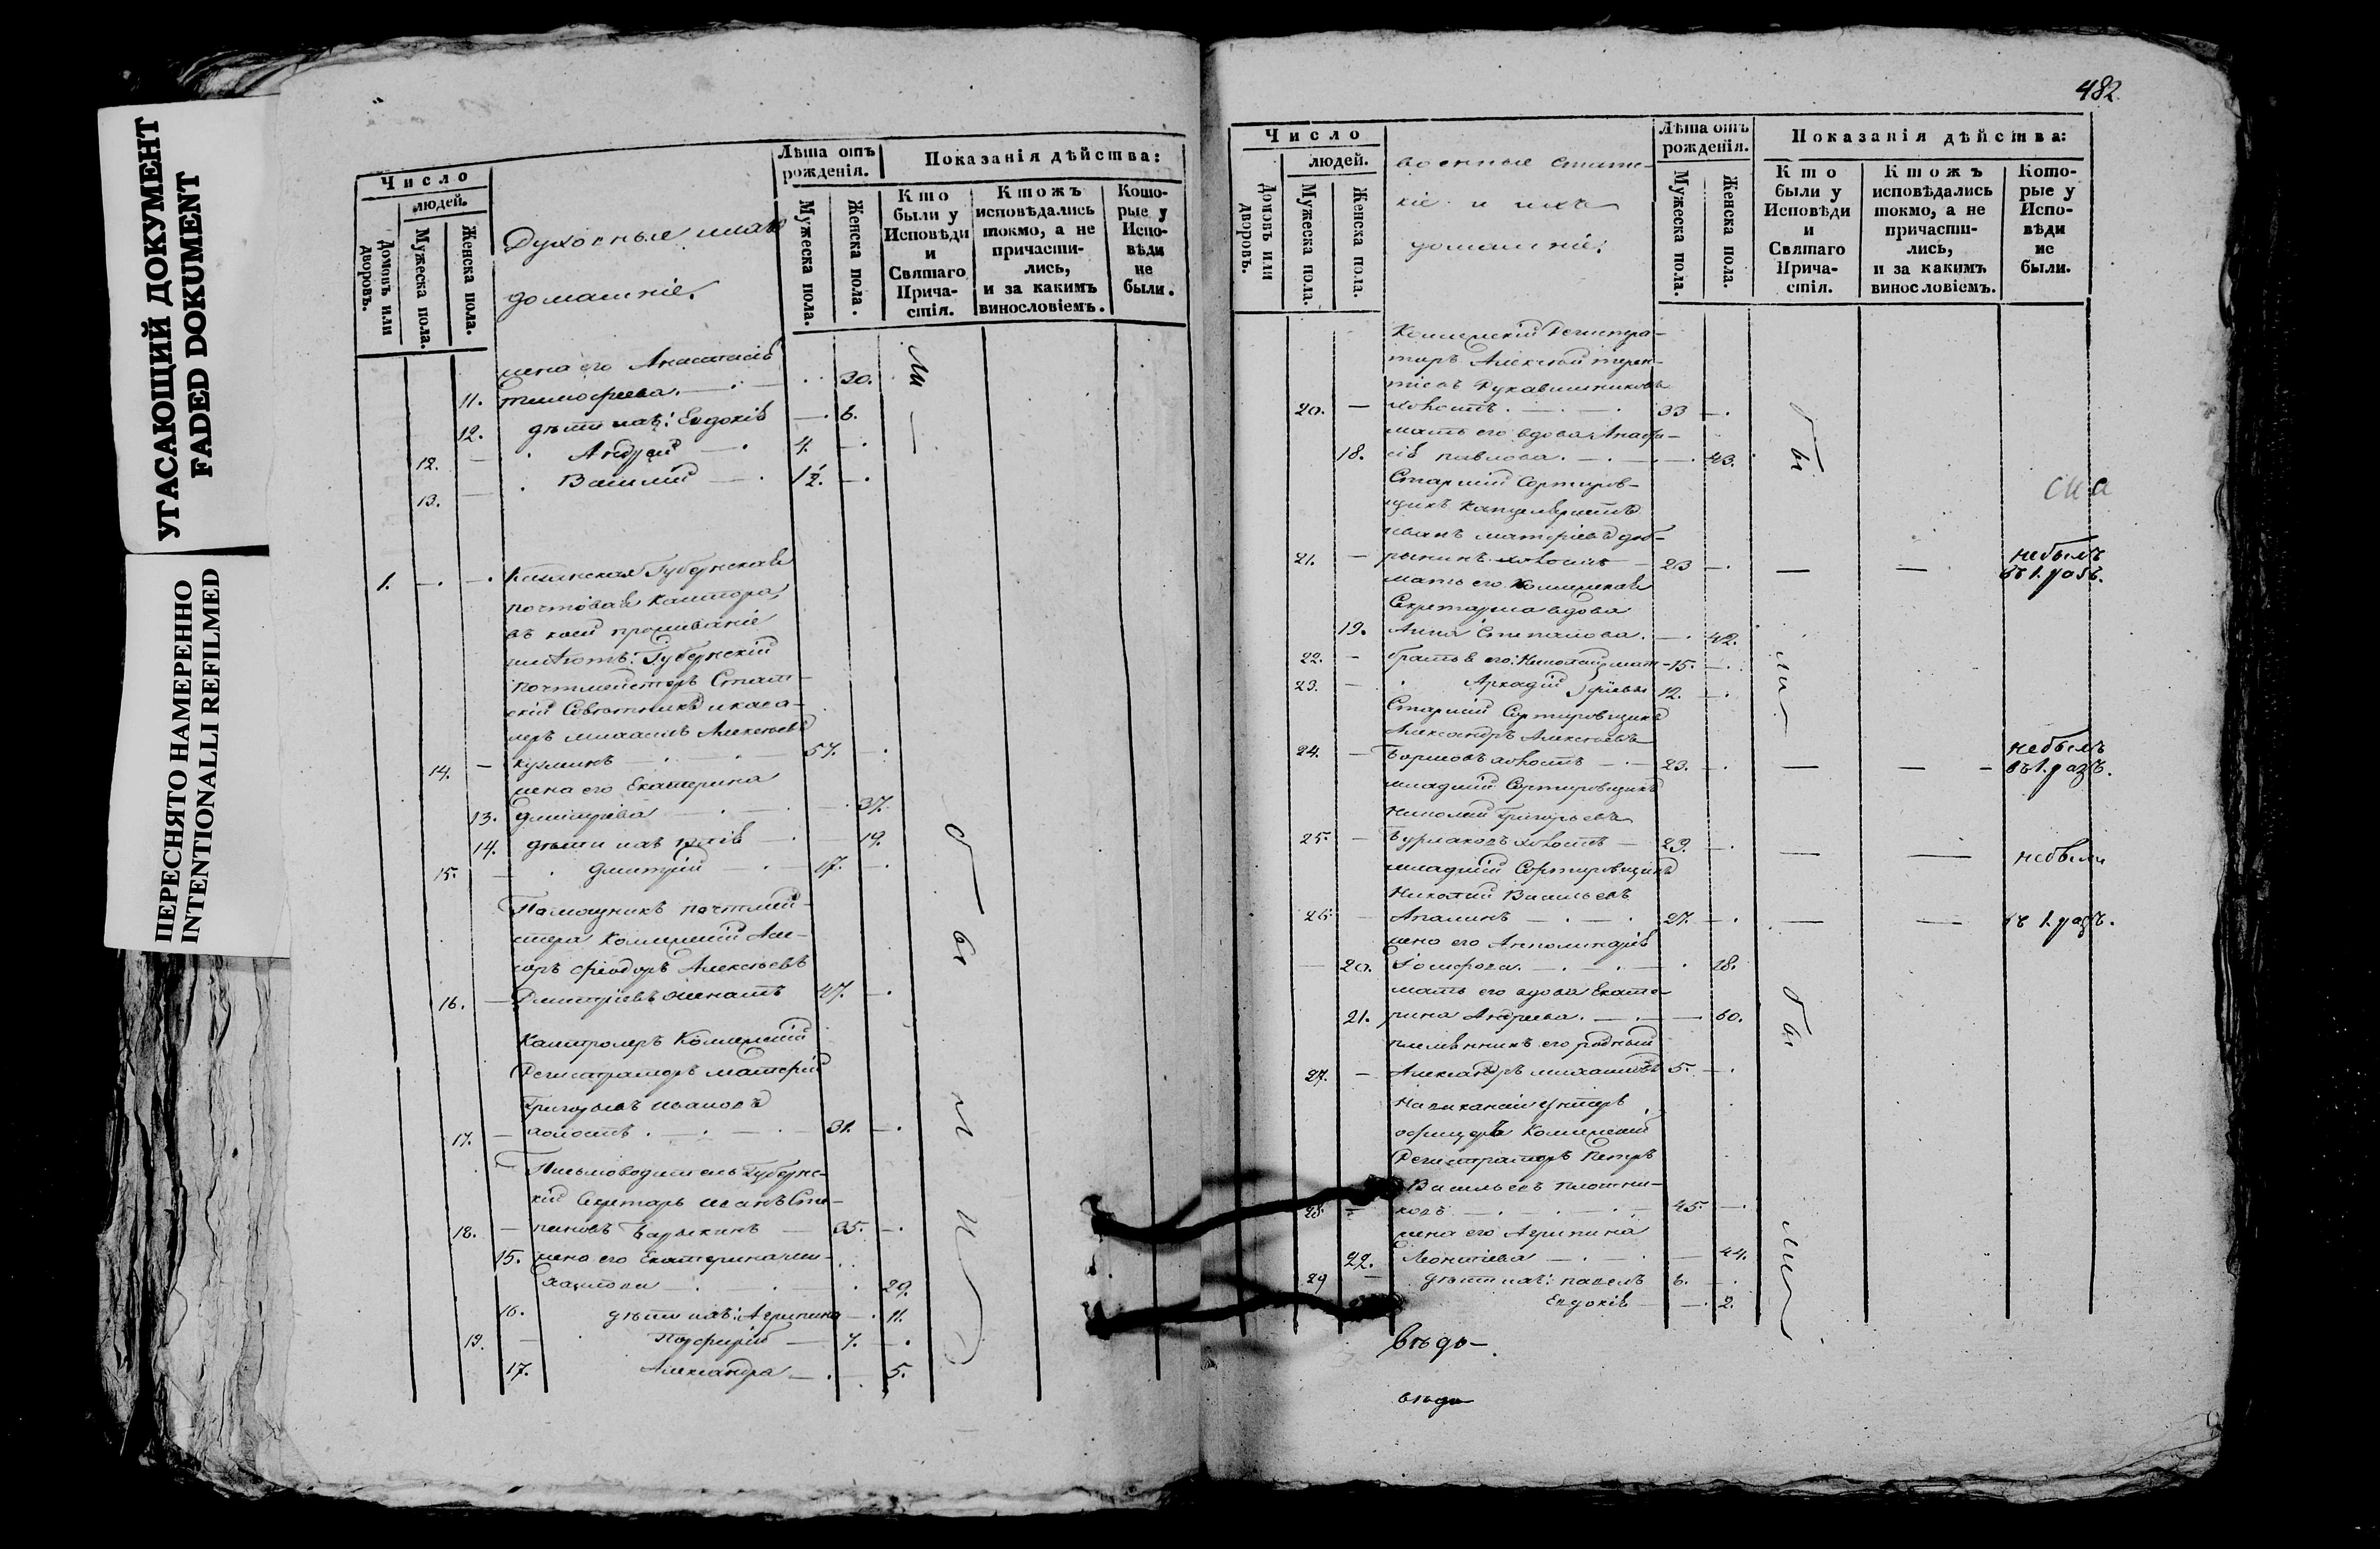 УГАСАЮЩИЙ ДОКУМЕНТ
FADED DOKUMENT
ПЕРЕСНЯТО НАМЕРЕННО
INTENTIONALLI REFILMED
Число
людей.
Домовъ или дворовъ.
Мужеска пола.
Женска пола.
Духовные и ихъ
домашніе.
Лѣта отъ рожденія.
Мужеска пола.
Женска пола.
Показанія дѣйства:
Кто были у Исповѣди и Святаго Прича-стія.
Ктожъ исповѣдались токмо, а не причасти-лись, и за какимъ винословіемъ.
Кото-рые у Испо-вѣди не были.
жена его Анастасія
11. Тимофеева. 30.
12. дѣти ихъ: Евдокія 6.
12. Андрей 4.
13. Василій 1/2.
1. Казанская Губернская
почтовая Контора,
въ коей проживаніе
имѣютъ: Губернскій
почтмейстеръ Стат-
скій Совѣтникъ и кава-
леръ Михаилъ Алексѣевъ
14. Кузминъ 57.
жена его Екатерина
13. Дмитріева 37.
14. дѣти ихъ Юлія 19.
15. Дмитрій 17.
Помощникъ почтмей-
стера Коллежскій Асе-
соръ Феодоръ Алексѣевъ
16. Дмитріевъ женатъ 47.
Контролеръ Коллежскій
Регистраторъ Матфей
Григорьевъ Ивановъ
17. холостъ. 31.
Письмоводитель Губернс-
кій Секретарь Иванъ Сте-
18. пановъ Барыкинъ 35.
15. жена его Екатерина Ми-
хаилова 29.
16. дѣти ихъ: Агрипина 11.
19. Порфирій 7.
17. Александра 5.
482
Число
людей.
Домовъ или дворовъ.
Мужеска пола.
Женска пола.
военные статс-
кіе и ихъ
домашніе.
Лѣта отъ рожденія.
Мужеска пола.
Женска пола.
Показанія дѣйства:
Кто были у Исповѣди и Святаго Прича-стія.
Ктожъ исповѣдались токмо, а не причасти-лись, и за какимъ винословіемъ.
Кото-рые у Испо-вѣди не были.
Коллежскій Регистра-
торъ Алексѣй Терен-
тіевъ Рукавишниковъ
20. холостъ. 33
мать его вдова Анаста-
18. сія Павлова. 43.
Старшій Сортиров-
щикъ Канцеляристъ
Иванъ Матфеевъ Доб-
21. рынинъ холостъ 23 небылъ въ 1. разъ.
мать его Коллежская
Секретарша вдова
19. Анна Степанова. 42.
22. братья его: Николай Мат- 15.
23. Аркадій фѣевы 12.
Старшій Сортировщикъ
Александръ Алексѣевъ
24. холостъ 23. небылъ въ 1. разъ.
младшій Сортировщикъ
Николай Григорьевъ
25. Бурлаковъ холостъ 29. небыли
младшій Сортировщикъ
Николай Васильевъ
26. Апалинъ 27. въ 1. разъ.
жена его Апполинарія
20. 18.
мать его вдова Екате-
21. рина Андреева. 60.
племянникъ его родный
27. Александръ Михаиловъ 5.
унтеръ
офицеръ Коллежскій
Регистраторъ Петръ
Васильевъ Плотни-
28. ковъ 45.
жена его Агрипина
22. Леонтіева 44.
29 дѣти ихъ: Павелъ 6.
Евдокія 2.
вѣдо-
вѣдо